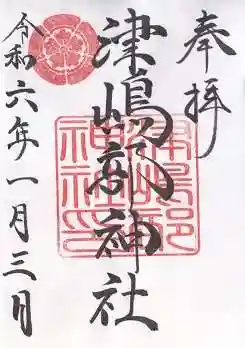 奉拝
津嶋部神社
令和六年一月三日
津嶋部
神社印